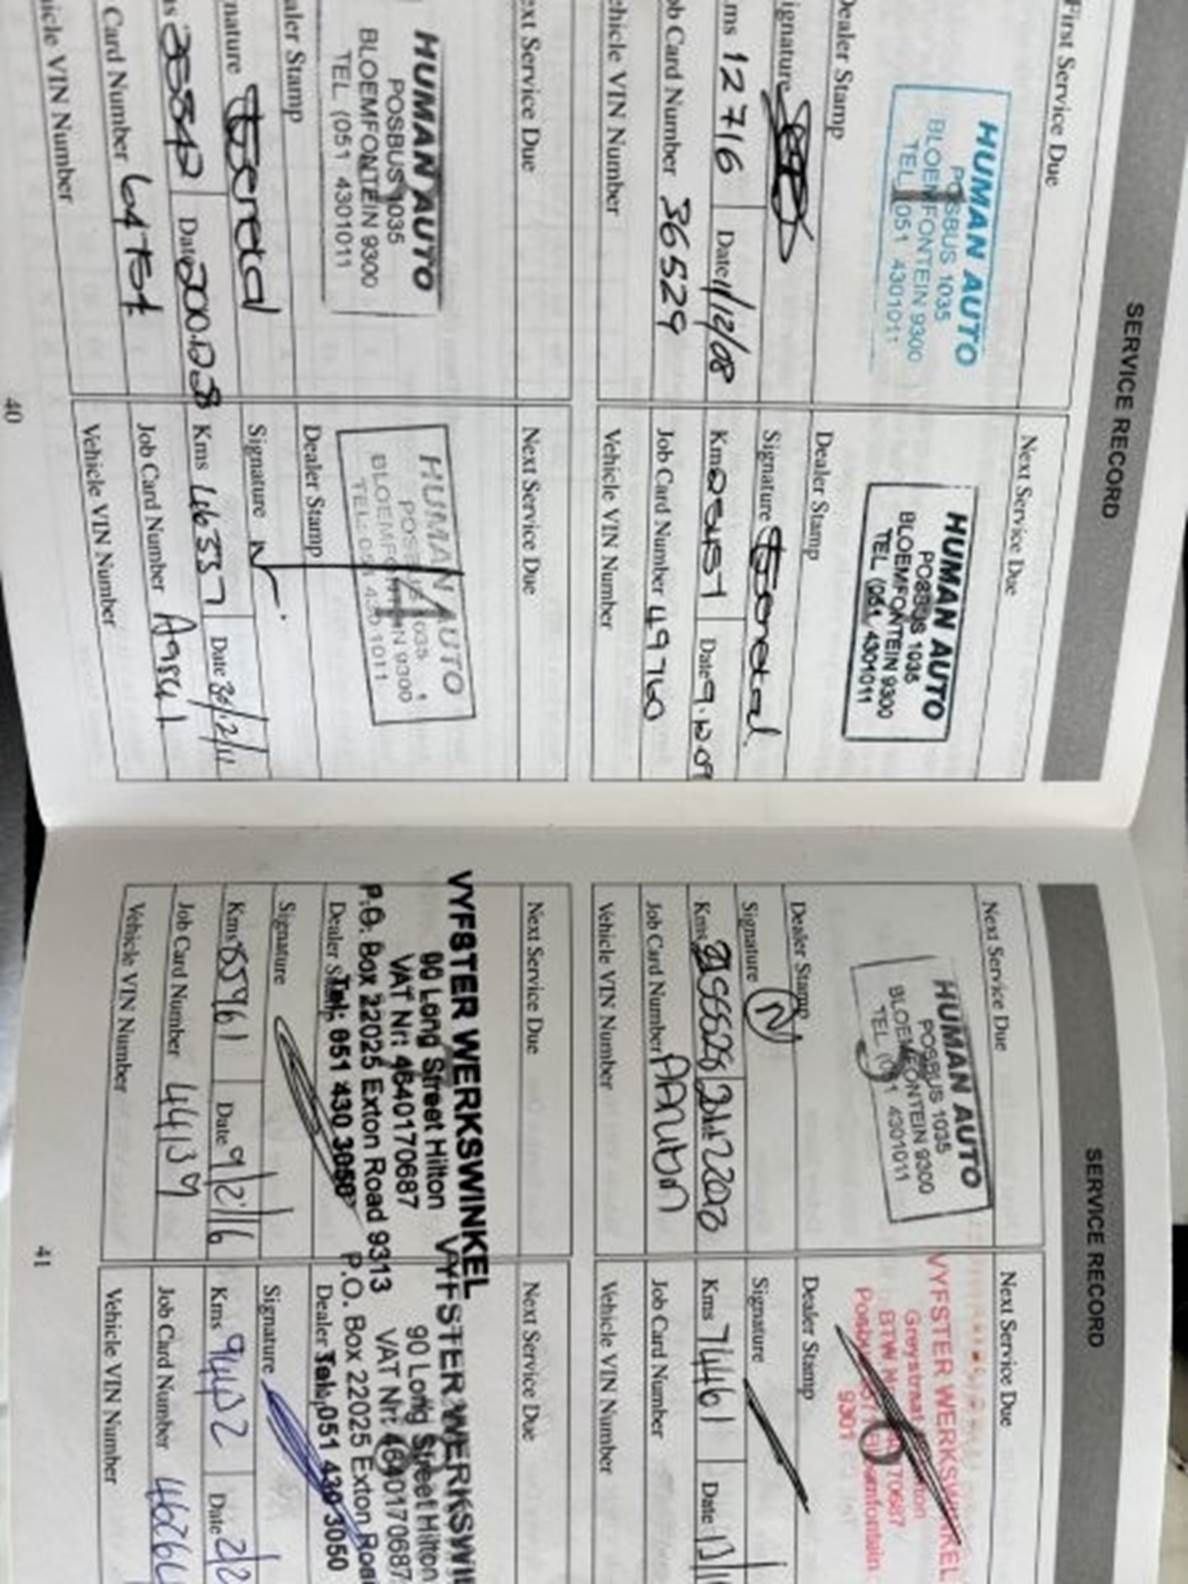 SERVICE RECORD
First Service Due
HUMAN AUTO
POSBUS 1035
BLOEMFONTEIN 9300
TEL (051 4301011
Dealer Stamp
Signature
ms 12716 Date 1/12/08
ob Card Number 36529
ehicle VIN Number
Next Service Due
HUMAN AUTO
POSBUS 1035
BLOEMFONTEIN 9300
TEL (051 4301011
Dealer Stamp
Signature
Kms Date 9.12.09
Job Card Number 49760
Vehicle VIN Number
ext Service Due
HUMAN AUTO
POSBUS 1035
BLOEMFONTEIN 9300
TEL (051 4301011
aler Stamp
nature
Date
Card Number
icle VIN Number
Next Service Due
HUMAN AUTO
POSBUS 1035
BLOEMFONTEIN 9300
TEL: 051 430 1011
Dealer Stamp
Signature
Kms 46337 Date
Job Card Number
Vehicle VIN Number
40
SERVICE RECORD
Next Service Due
HUMAN AUTO
POSBUS 1035
BLOEMFONTEIN 9300
TEL (051 4301011
Dealer Stamp
Signature N
Kms
Job Card Number
Vehicle VIN Number
Next Service Due
VYFSTER WERKSWINKEL
Greystraat
BTW
9301
Dealer Stamp
Signature
Kms 74461 Date
Job Card Number
Vehicle VIN Number
Next Service Due
VYFSTER WERKSWINKEL
90 Long Street Hilton
VAT Nr: 4640170687
P.O. Box 22025 Exton Road 9313
Dealer Tel: 051 430 3050
Signature
Kms 85961 Date 9/2/16
Job Card Number 44139
Vehicle VIN Number
Next Service Due
VYFSTER WERKSWI
90 Long Street Hilton
VAT Nr: 4640170687
P.O. Box 22025 Exton Roa
Dealer Tel: 051 430 3050
Signature
Kms 94432 Date 2/2
Job Card Number
Vehicle VIN Number
41